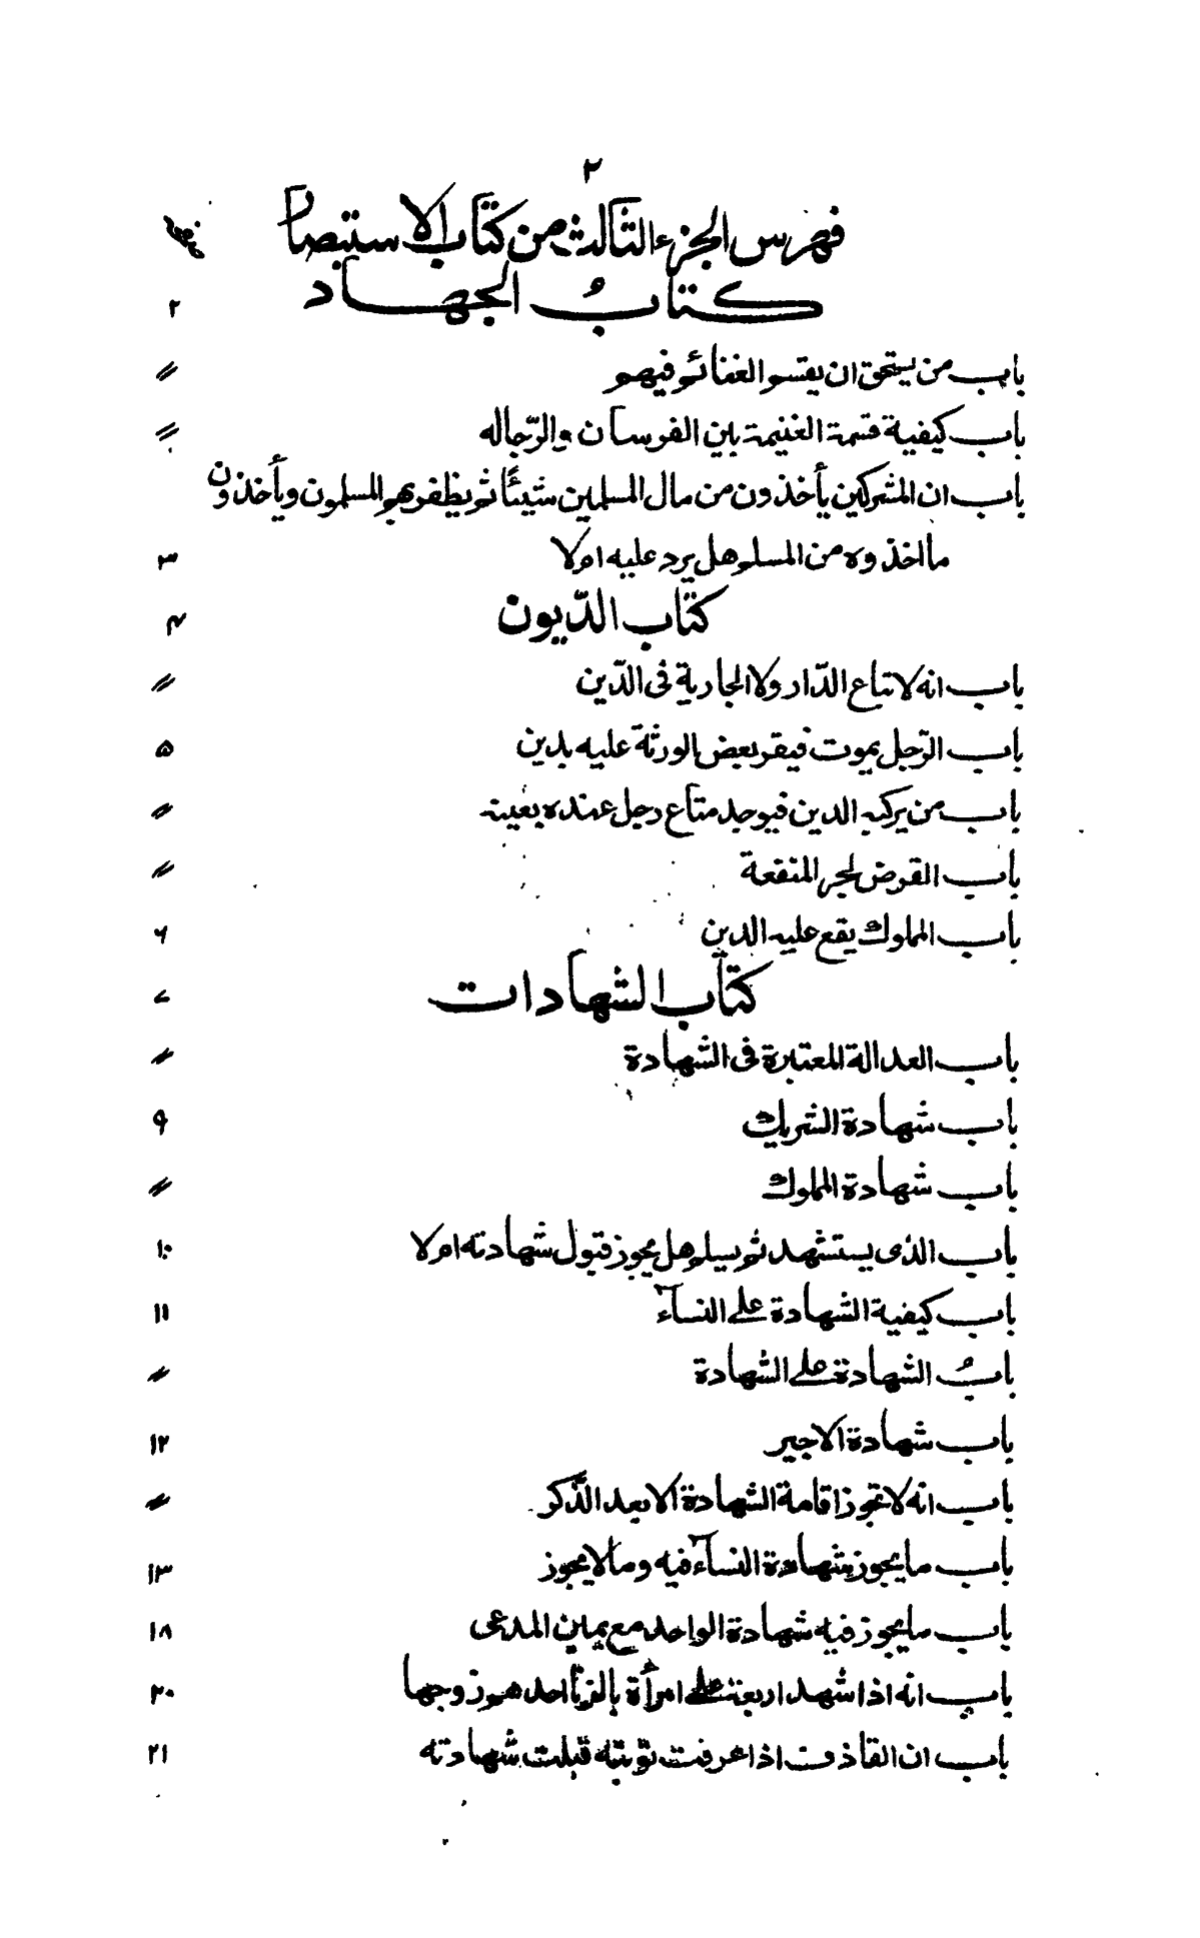 ٢
فهرس الجزء الثالث من كتاب الاستبصار صفحه
كتابُ الجهاد ٢
باب من يستحق ان يقسم الغنائم فيهم 〃
باب كيفية قسمة الغنيمة بين الفرسان والرّجاله 〃
باب ان المشركين يأخذون من مال المسلمين شيئًا ثم يظفر بهم المسلمون ويأخذون
ما اخذوه من المسلم هل يرد عليه ام لا ٣
كتاب الدّيون ۴
باب انه لا تباع الدّار ولا الجارية فى الدّين 〃
باب الرّجل يموت فيقر بعض الورثة عليه بدين ۵
باب من يركبه الدين فيوجد متاع رجل عنده بعينه 〃
باب القرض لجر المنفعة 〃
باب المملوك يقع عليه الدين ۶
كتاب الشهادات ٧
باب العدالة المعتبرة فى الشهادة 〃
باب شهادة الشريك ٩
باب شهادة المملوك 〃
باب الذى يستشهد ثم يسلم هل يجوز قبول شهادته ام لا ١٠
باب كيفية الشهادة على النسآء ١١
بابُ الشهادة على الشهادة 〃
باب شهادة الاجير ١٢
باب انه لا تجوز اقامة الشهادة الا بعد الذّكر 〃
باب ما يجوز شهادة النسآء فيه وما لا يجوز ١٣
باب ما يجوز فيه شهادة الواحد مع يمين المدعى ١٨
باب انه اذا شهد اربعة على امرأة بالزنا احدهم زوجها ٢٠
باب ان القاذف اذا عرفت توبته قبلت شهادته ٢١